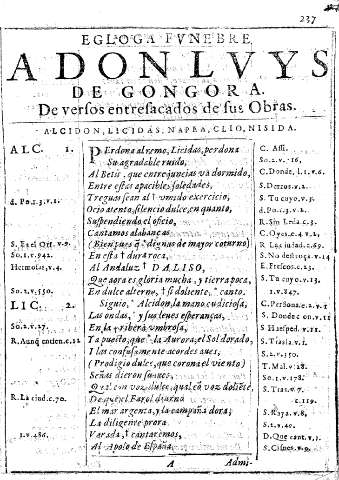 237
EGLOGA FVNEBRE,
A DON LVYS
DE GONGORA.
De versos entresacados de sus Obras.
ALCIDON, LICIDAS, NAPEA, CLIO, NISIDA.
A L C. 1. Perdona al remo, Licidas, perdona C. Assi.
Su agradable ruido, So.2.v.16.
Al Betis, que entre juncias va dormido, C. Donde, l.1.v.6.
Entre estas apacibles soledades, S. Derzos. v.2.
d. Po.1.3.v.1. Treguas sean al † vmido exercicio, S. Tu cuyo, v.3.
Ocio atento, silencio dulce, en quanto, d.Po.1.3.v.2.
Suspendiendo el oficio, R. Sin Leda c.3.
Cantamos alabanças C. Oyes. e.4.v.2.
S. Es el Orf. v.9. (Bien que ᵭ dignas de mayor coturno) R. Las ciudad.c.69.
So.1.v.942. En esta † dura roca, S. No destroça. v.14
Hermosos, v.4. Al Andaluz † DALISO, E. Frescos, c.23.
Que aora es gloria mucha, y tierra poca, S. Tu cuyo. v.13.
So.2.v.550. En dulce alterno, † si doliente, canto. 1.v.847.
L I C. 2. Siguio, Alcidon, la mano cudiciosa, C. Persona, e.2.v.1
Las ondas, y sus leues esperanças, S. Donde con v.11
So.2.v.27. En la † ribera vmbrosa, S. Hasped. v.11.
R. Aunq entien.c.12 Ta puesto, que la Aurora, el Sol dorado, S. Traslà. v.1.
I las confusamente acordes aues, S.2.v.350.
(Prodigio dulce, que corona el viento) T. Mal. v.28.
Señas dieron suaues, So.1.v.178.
Qual con voz dulce, qual con voz doliente, S. Tras, v.7.
R. La ciud. c.70. De que el Farol diurno c.119.
El mar argenta, y la campaña dora; S. Raya. v.8.
La diligente prora S.2.v.40.
1.v.486. Varada, † cantaremos, D. Que cant.v.3.
Al Apolo de España. S. Cisnes. v.9.
A Admi-